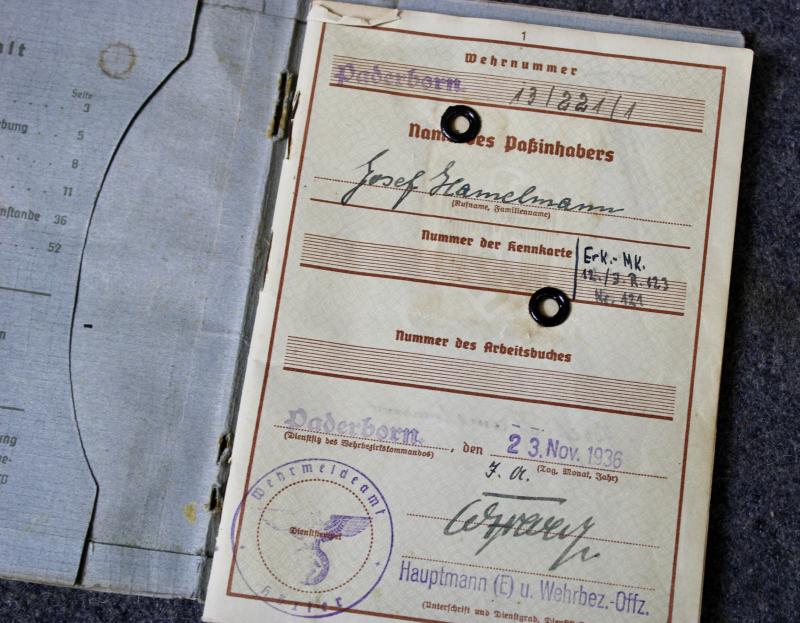 alt
Seite
3
bung . . 5
8
11
nstände 36
52
n
ng
ge-
1
Wehrnummer
Paderborn. 13/221/1
Name des Paßinhabers
Josef Hamelmann
(Rufname, Familienname)
Nummer der Kennkarte
Erk.-MK.
12./J.R.123
Nr. 121
Nummer des Arbeitsbuches
Paderborn. , den 23. Nov. 1936
(Dienstsitz des Wehrbezirkskommandos)
(Tag, Monat, Jahr)
J. A.
Wehrmeldeamt
Dienststempel
Hauptmann (E) u. Wehrbez.-Offz.
(Unterschrift und Dienstgrad,